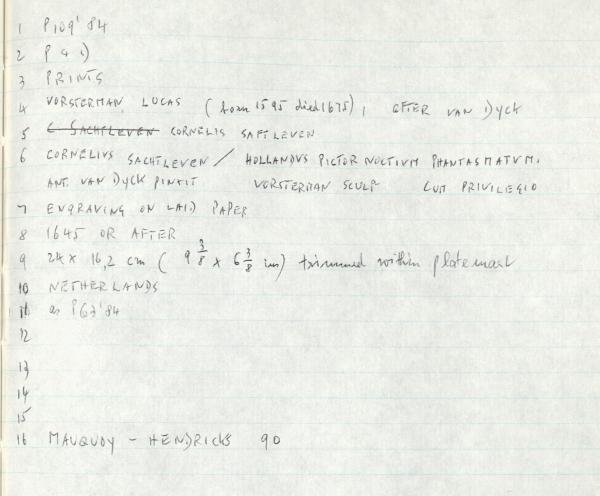 1 P109'84
2 P & D
3 PRINTS
4 VORSTERMAN, LUCAS (born 1595 died 1675), AFTER VAN DYCK
5 C SACHTLEVEN CORNELIS SAFTLEVEN
6 CORNELIVS SACHTLEVEN / HOLLANDVS PICTOR NOCTIVM PHANTASMATVM.
ANT. VAN DYCK PINXIT VORSTERMAN SCULP CUM PRIVILEGIO
7 ENGRAVING ON LAID PAPER
8 1645 OR AFTER
9 24 x 16,2 cm ( 9 3/8 x 6 3/8 ins) trimmed within platemark
10 NETHERLANDS
11 as P63'84
12
13
14
15
16 MAUQUOY - HENDRICKS 90